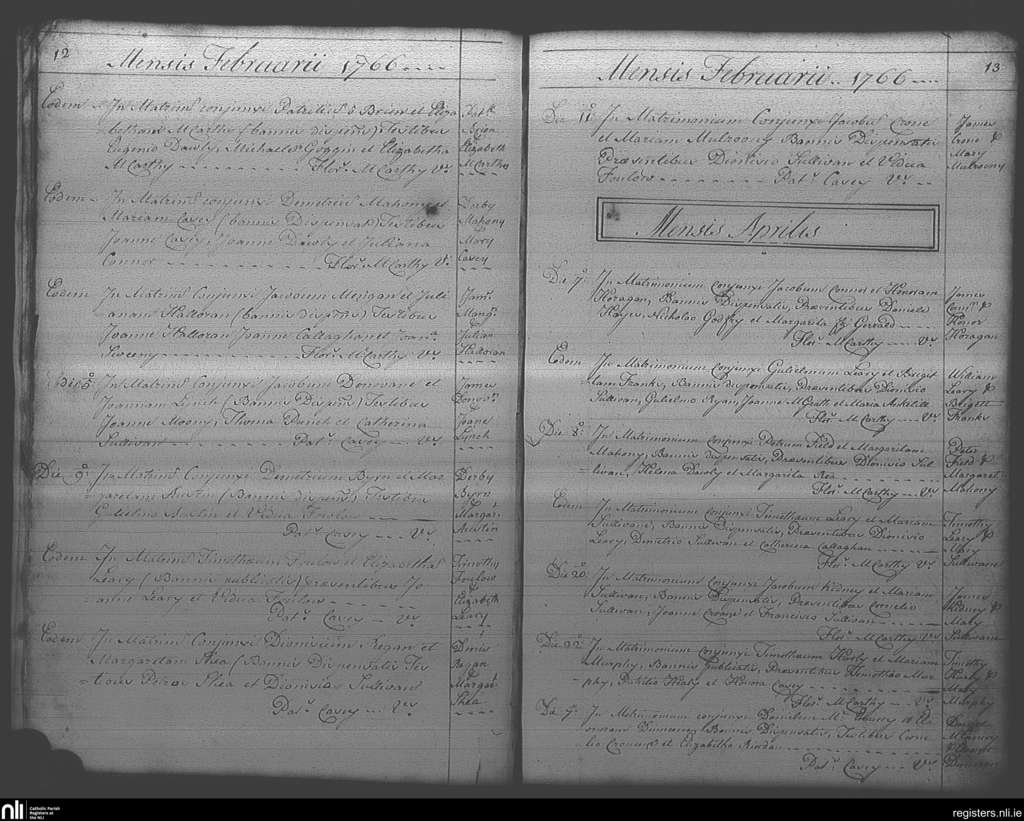 12
Mensis Februarii 1766
Eodem In Matrim: conjunxi Patritiũ ô Brien et Eliza
=betham McCarthy (bannis dispẽtis) Testibus
Eugenio Dawly, Michaele Goggin et Elizabetha
McCarthy Flor: McCarthy Vr:
Patk
Brien
Elizabeth
McCarthy
Eodem In Matrim: conjunxi Demetriũ Mahony et
Mariam Cavey (bannis Dispensatis) Testibus
Joanne Cavey, Joanne Dawly et Juliana
Connor Florr McCarthy Vr:
Darby
Mahony
Mary
Cavey
Eodem In Matrim: Conjunxi Jacobum Mongan et Juli
anam Halloran (bannis dispẽtis) Testibus
Joanne Halloran Joanne Callaghan et Joana
Sweeny Florr McCarthy Vr
Jams
Mongn
Julian
Halloran
Die 5 In Matrim: Conjunxi Jacobum Donovane et
Joannam Lynch (Bannis Dispẽn) Testibus
Joanne Moony, Thoma Punch et Catherina
Sullivan Patr Cavey Vr
James
Donovn
Joane
Lynch
Die 9o In Matrim: Conjunxi Demetrium Byrn et Mar
garetam Austin (Bannis dispens) Testibus
Gulielmo Austin et Vidua Fowlow
Patr Cavey Vr
Derby
Byrn
Margar
Austin
Eodem In Matrim: Timotheum Fowlow et Elizabetha
Leary (Bannis publicatis) Præsentibus Jo
anne Leary et Vidua Fowlow
Patr Cavey Vr
Timothy
Fowlow
Elizabeth
Leary
Eodem In Matrim: Conjunxi Dionisium Regan et
Margaretam Shea (Bannis Dispensatis Tes
tibus Petro Shea et Dionisio Sullivan
Patr Cavey Vr
Dinis
Ragan
Margar
Shea
13
Mensis Februarii 1766
Die 11o In Matrimonium Conjunxi Jacobum Crone
et Mariam Mulroony Bannis Dispensatis
Præsentibus Dionisio Sullivan et Vidua
Fowlow Patr Cavey Vr
James
Crone &
Mary
Mulroony
Mensis Aprilis
Die 7o In Matrimonium Conjunxi Jacobum Connor et Honoram
Horagan, Bannis Dispensatis, Præsentibus Daniele
Hayes, Nicholao Godfry et Margarita fz Gerald
Florr McCarthy Vr
James
Conr &
Honor
Horagan
Eodem In Matrimonium Conjunxi Gulielmum Leary et Brigit
tam Franks, Bannis dispensatis, Præsentibus Dionisio
Sullivan, Gulielmo Ryan, Joanne McGrath et Maria
Florr McCarthy Vr
William
Leary &
Brigett
Franks
Die 8o In Matrimonium Conjunxi Petrum Field et Margaritam
Mahony, Bannis dispensatis, Præsentibus Dionisio Sul
=livan, Helena Dawly et Margarita Rea
Florr McCarthy Vr
Peter
Field &
Margaret
Mahony
Eodem In Matrimonium Conjunxi Timotheum Leary et Mariam
Sullivane, Bannis Dispensatis, Præsentibus Dionisio
Leary, Demetrio Sullivan et Catherina Callaghan
Florr McCarthy Vr
Timothy
Leary &
Mary
Sullivane
Die 20 In Matrimonium Conjunxi Jacobum Kidney et Mariam
Sullivan, Bannis Dispensatis, Præsentibus Cornelio
Sullivan, Joanne Crone et Francisco Sullivan
Florr McCarthy Vr
James
Kidney &
Mary
Sullivan
Die 22 In Matrimonium Conjunxi Timotheum Healy et Mariam
Murphy, Bannis Publicatis, Præsentibus Timotheo Mur
=phy, Patritio Healy et Honora Casey
Florr McCarthy Vr
Timothy
Healy &
Mary
Murphy
Die 9o In Matrimonium conjunxi Danielem et
Bannis Dispensatis, Testibus Corne
lio et Elizabetha
Patr Cavey Vr
nli
Catholic Parish
Registers at
the NLI
registers.nli.ie